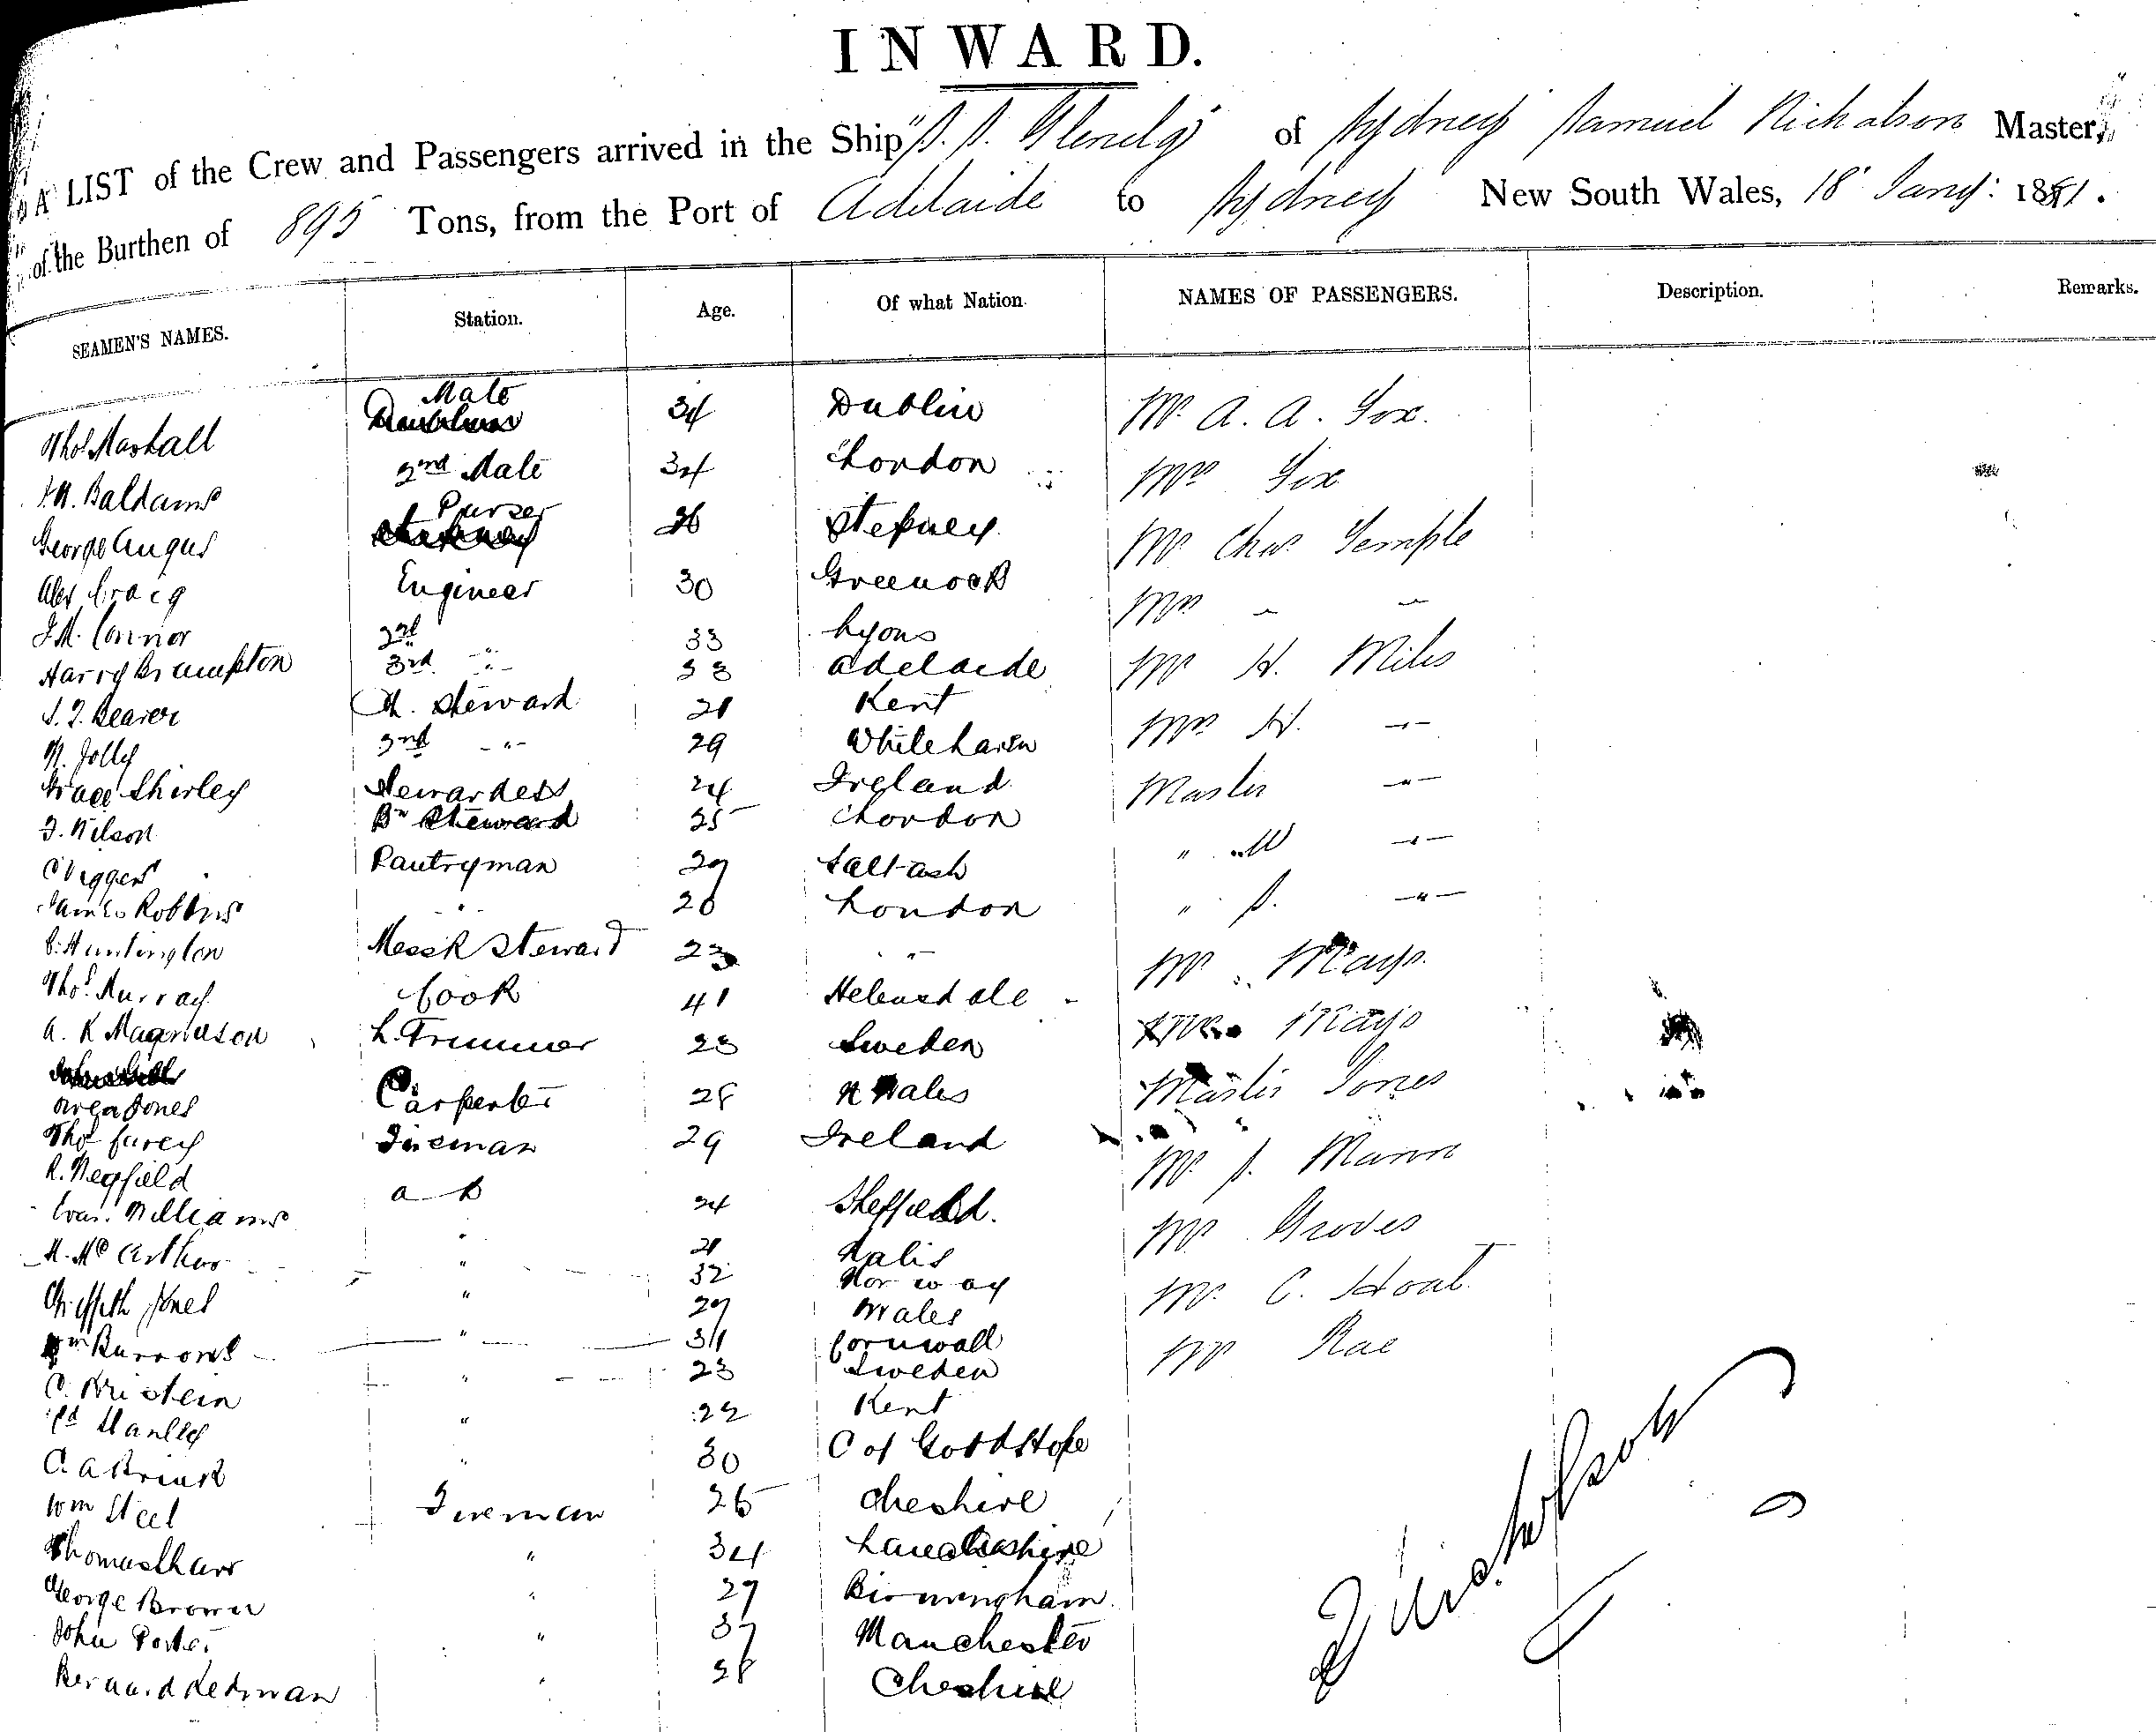 INWARD.
A LIST of the Crew and Passengers arrived in the Ship "S. S. Glenelg" of Sydney Samuel Nicholson Master,
of the Burthen of 895 Tons, from the Port of Adelaide to Sydney New South Wales, 18 Jany: 1881.
SEAMEN'S NAMES. Station. Age. Of what Nation. NAMES OF PASSENGERS. Description. Remarks.
Thos Marshall Mate 34 Dublin Mr A. A. Fox.
2nd Mate 34 London Mrs Fox
George Angus Purser 26 Stepney Mr Chas Temple
Alex Craig Engineer 30 Greenock Mrs " "
J. M. Connor 2nd " 33 Lyons
Harry Brampton 3rd " 33 Adelaide Mr H. Miles
Ch. Steward 21 Kent
M. Jolly 2nd " 29 Whitehaven Mrs H. "
Grace Shirley Stewardess 24 Ireland Master "
F. Nilson Bn Steward 25 London
C Viggers Pantryman 27 Saltash " W "
James Robbins " 20 London " S. "
C. Huntington Mess R Steward 23 " Mr Mays
Thos Murray Cook 41 Helmsdale
A. K Magnuson L. Trimmer 23 Sweden Mrs Mays
Owen Jones Carpenter 28 N Wales Master Jones
Thos Furey Fireman 29 Ireland
R. Negfield A B 24 Sheffield. Mr S. Mann
Evan Williams " 21 Wales Mr Groves
M. Mc Arthur " 32 Norway
Griffith Jones " 27 Wales Mr C. Hoal
Wm Burrows " 31 Cornwall Mr Rae
C. Kristein " 23 Sweden
Ed Stanley " 22 Kent
C. A Brink " 30 C of Good Hope
Wm Steel Fireman 26 Cheshire
Thomas Tharr " 34 Lancashire
George Brown " 27 Birmingham
John Porter " 37 Manchester
Bernard Redman " 28 Cheshire
S Nicholson